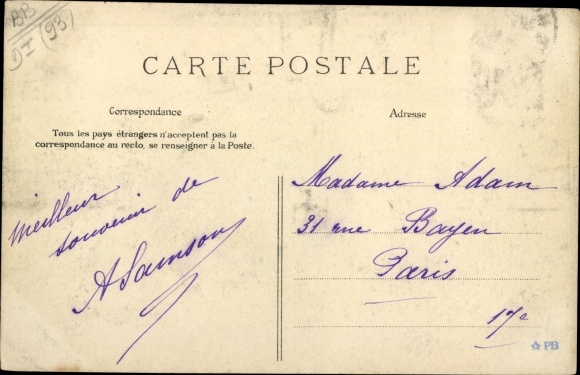 BB
(93)
CARTE POSTALE
Correspondance
Tous les pays étrangers n'acceptent pas la
correspondance au recto, se renseigner à la Poste.
meilleur
souvenir de
A Samson
Adresse
Madame Adam
31 rue Bayen
Paris
17e
PB